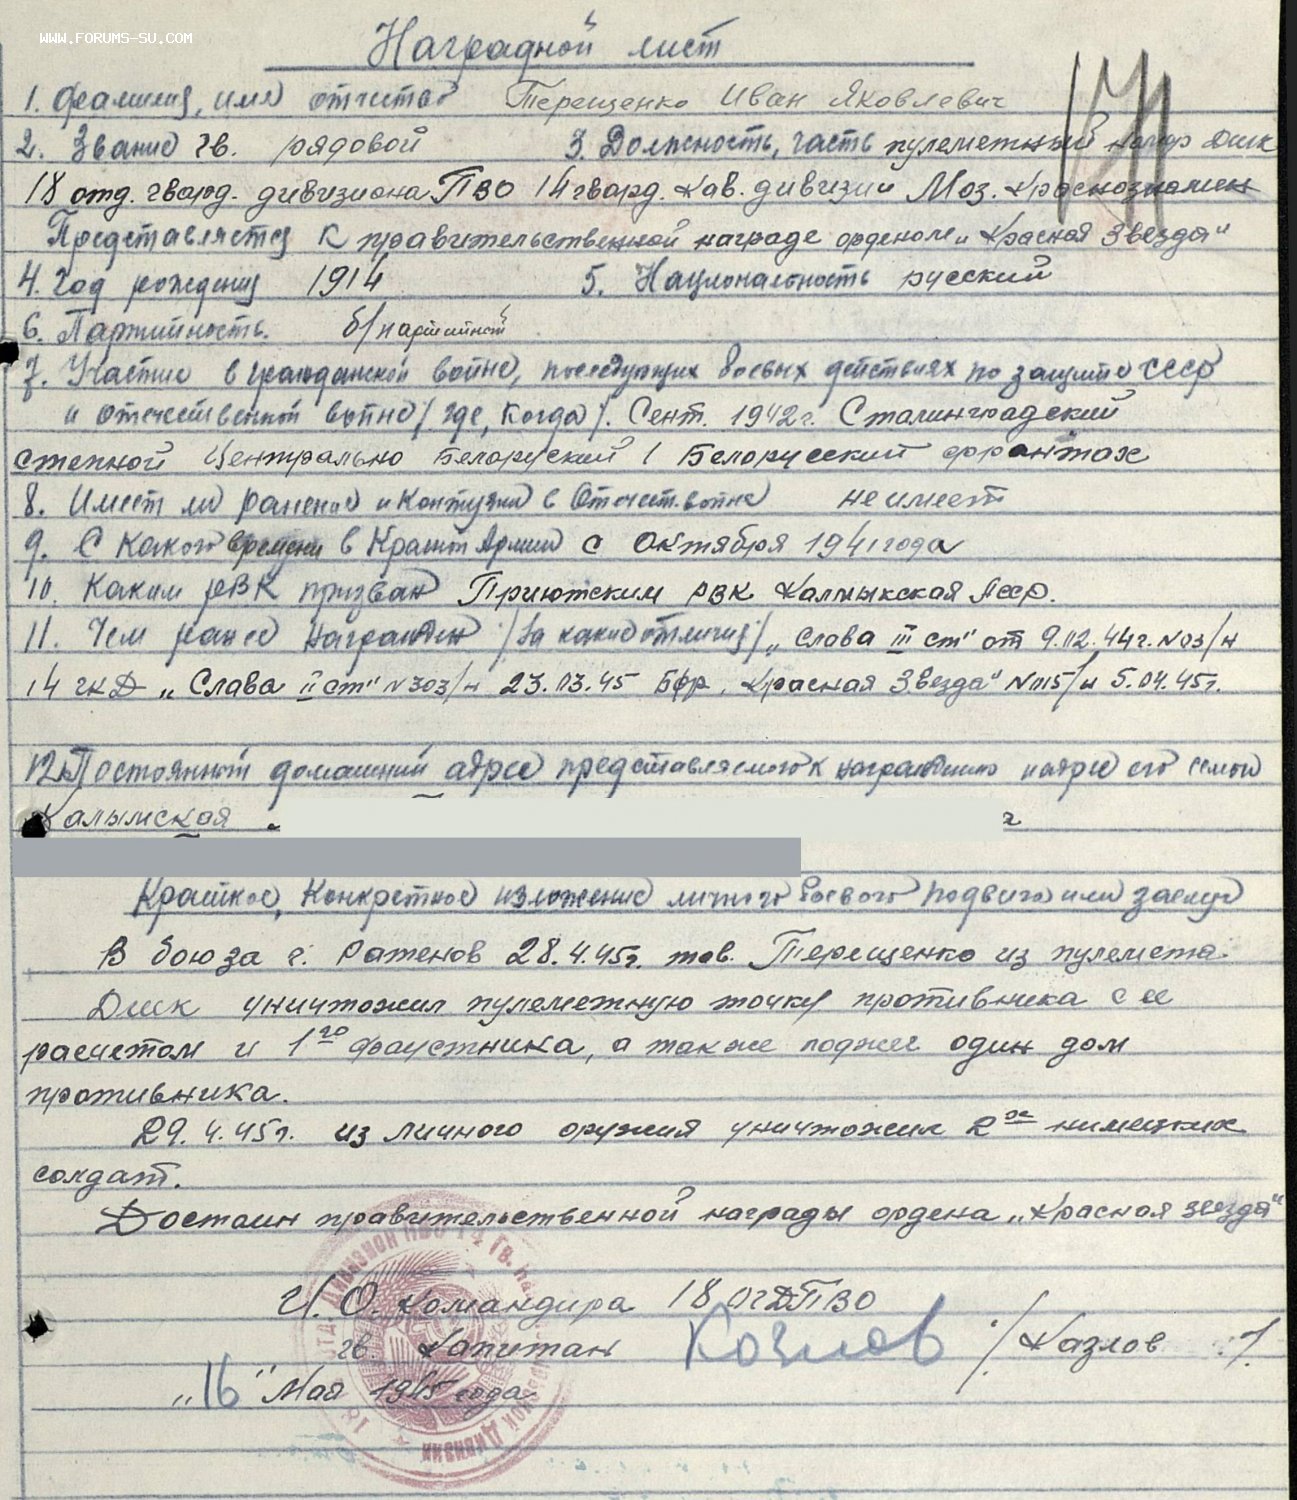 WWW.FORUMS-SU.COM
Наградной лист
1. Фамилия, имя отчество Терещенко Иван Яковлевич
2. Звание гв. рядовой 3. Должность, часть пулеметный номер Дшк
18 отд. гвард. дивизиона ПВО 14 гвард. Кав. дивизии Моз. Краснознамен
Представляется к правительственной награде орденом „Красная Звезда"
4. Год рождения 1914 5. Национальность русский
6. Партийность. б/партийный
7. Участие в гражданской войне, последующих боевых действиях по защите СССР
и отечественной войне /где, когда/. Сент. 1942г. Сталинградский
степной Центрально Белоруский 1 Белорусский фронтах
8. Имеет ли ранение и контузии в Отечест. войне не имеет
9. С какого времени в Красной Армии с Октября 1941 года
10. Каким РВК призван Приютским РВК Калмыкская Асср.
11. Чем ранее награжден /за какие отличия/ „Слава III ст" от 9.12.44г. N03/н
14 гкД „Слава II ст" N303/н 23.03.45 БФр. „Красная Звезда" N015/н 5.04.45г.
12. Постоянный домашний адрес представляемого к награждению и адрес его семьи
Калымская
г
Краткое, конкретное изложение личного боевого подвига или заслуг
В боях за г. Ратенов 28.4.45г. тов. Терещенко из пулемета
Дшк уничтожил пулеметную точку противника с ее
расчетом и 1го фаустника, а также поджег один дом
противника.
29.4.45г. из личного оружия уничтожил 2ох нимецких
солдат.
Достоин правительственной награды ордена „Красная звезда"
И.О. Командира 18 ОГДПВО
гв. Капитан Козлов /Казлов /
„16" Мая 1945 года